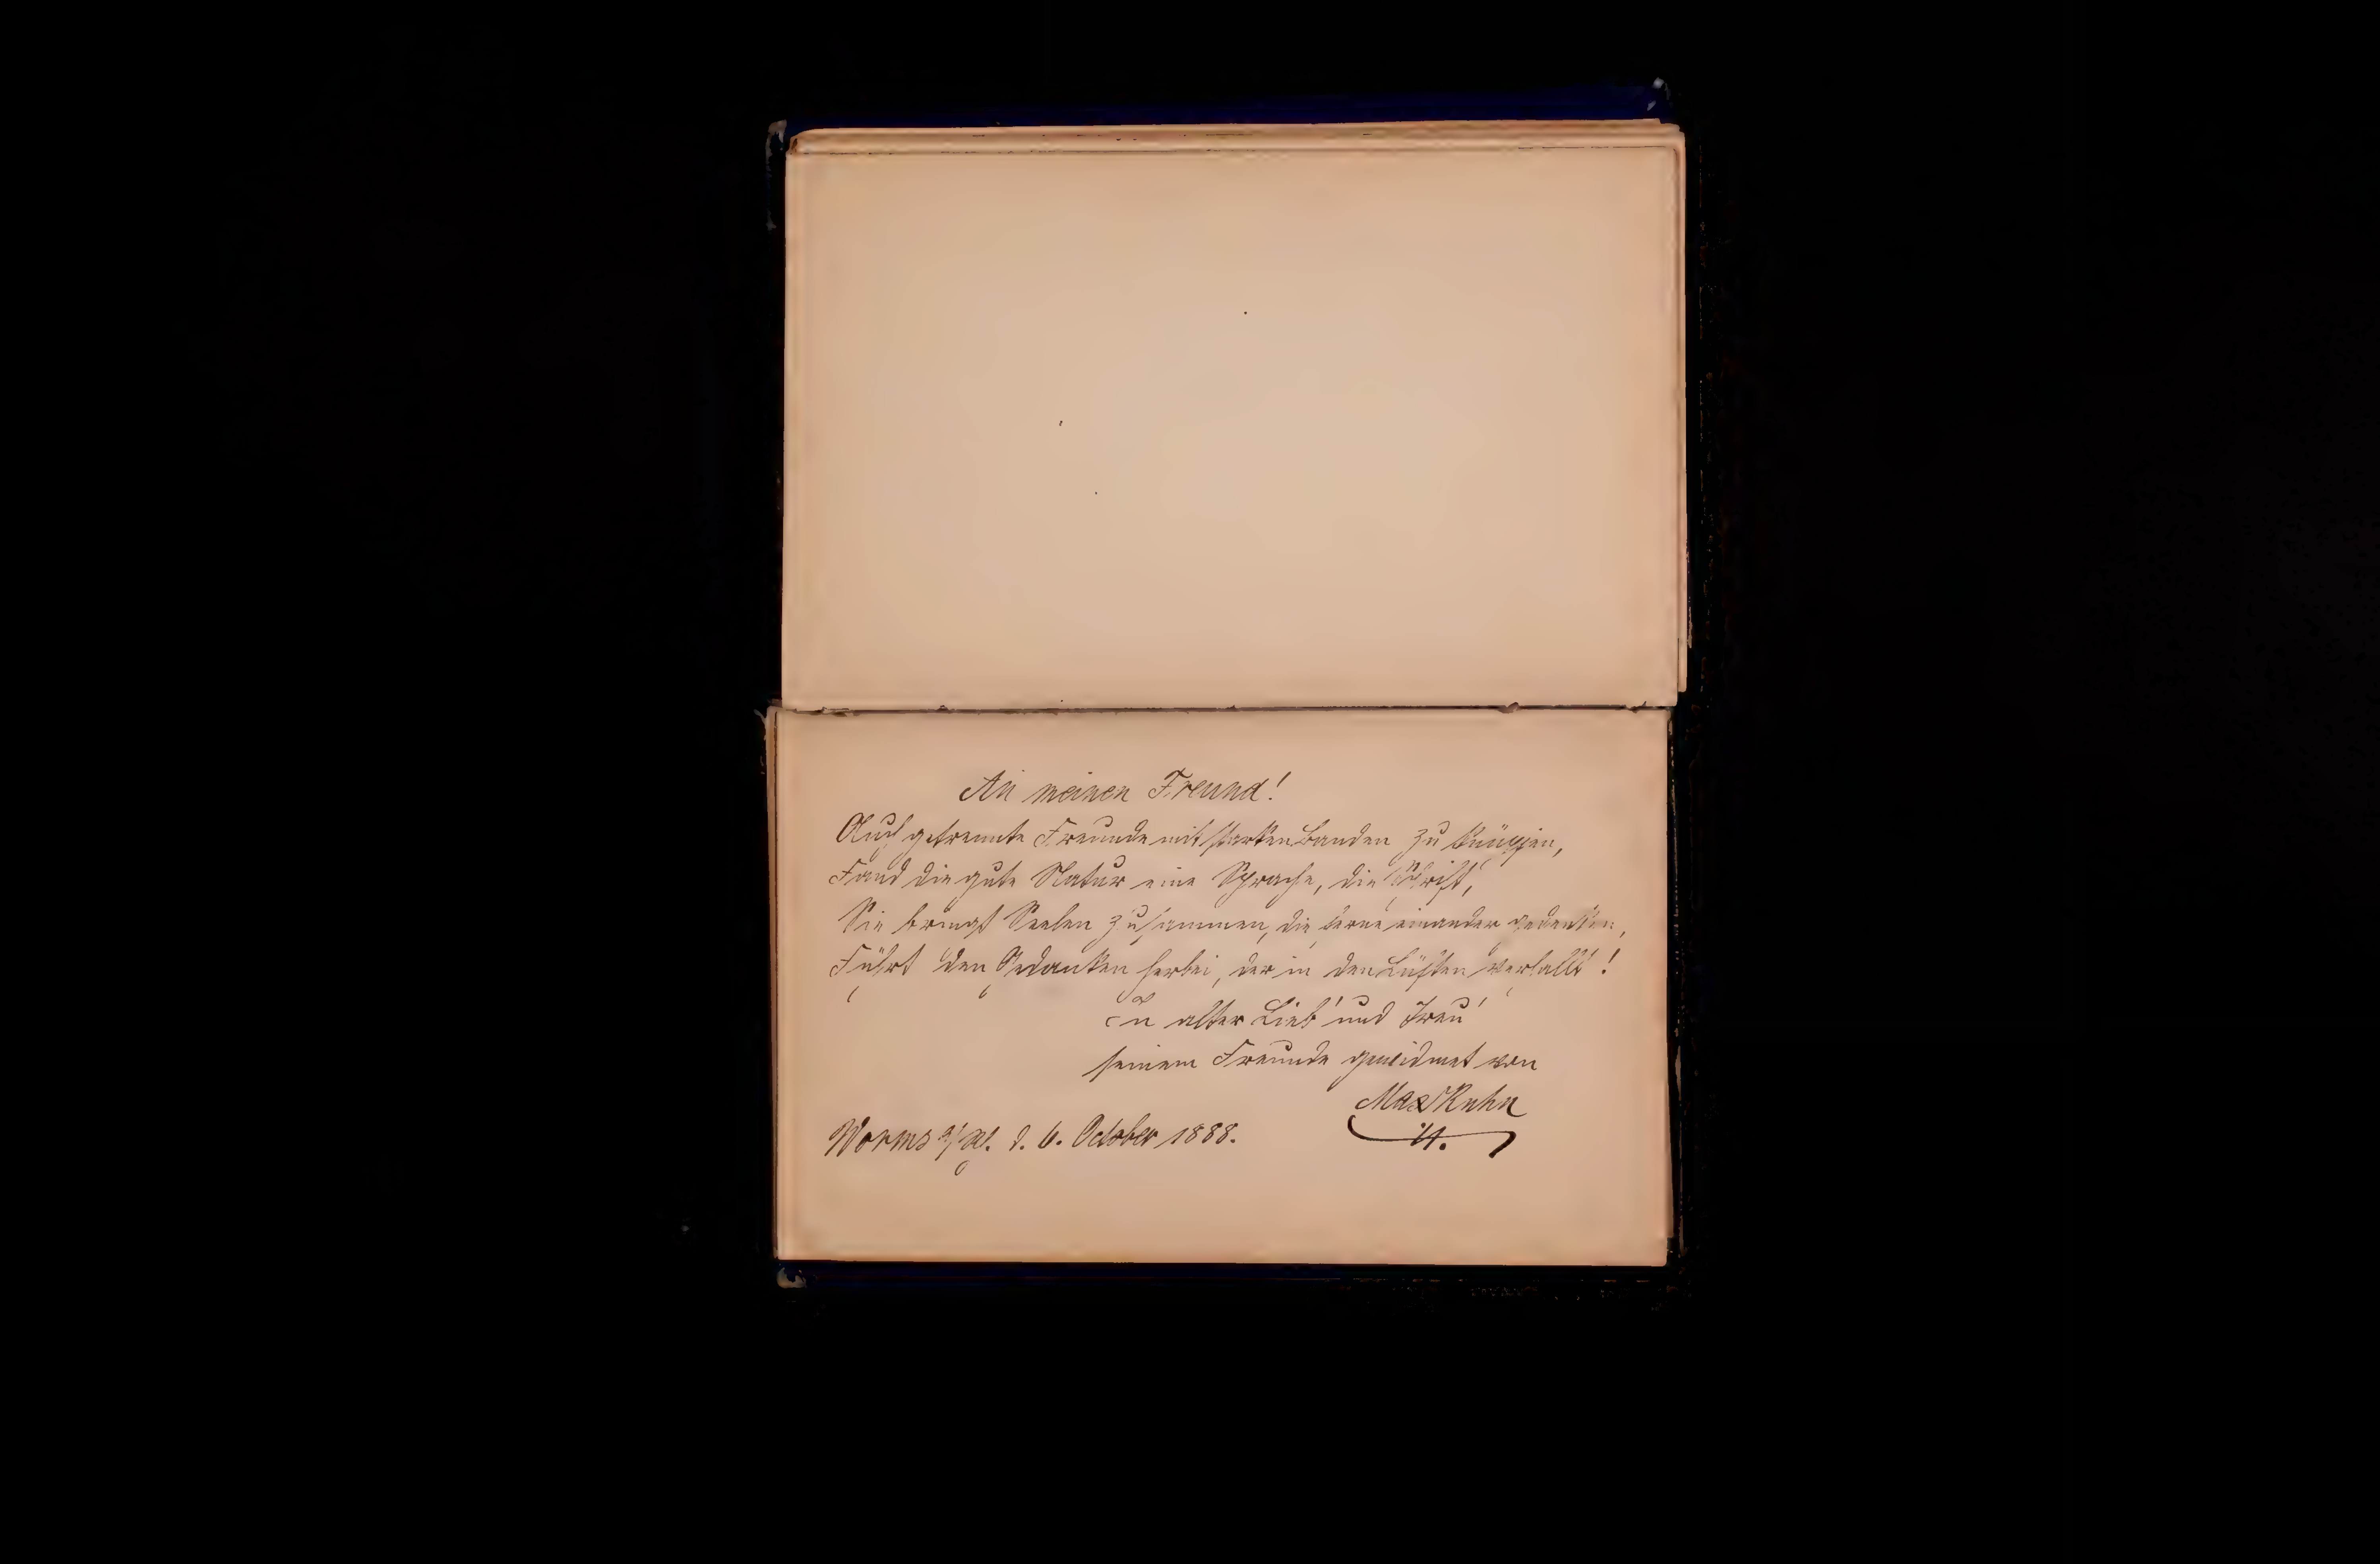 An meinen Freund!
Auch getrennte Freunde mit starken Banden zu knüpfen,
Fand die gute Natur eine Sprache, die Schrift,
Sie bringt Seelen zusammen, die ferne einander gedenken,
Führt den Gedanken herbei, der in den Lüften verhallt!
In alter Lieb' und Treu'
seinem Freunde gewidmet von
Max Kuhn
Worms a/Rh. d. 6. October 1888.